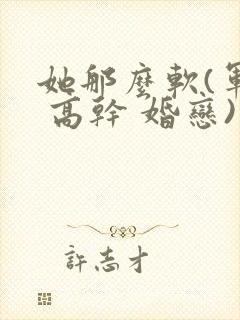 她那麼軟(軍
高幹 婚戀)
許志才